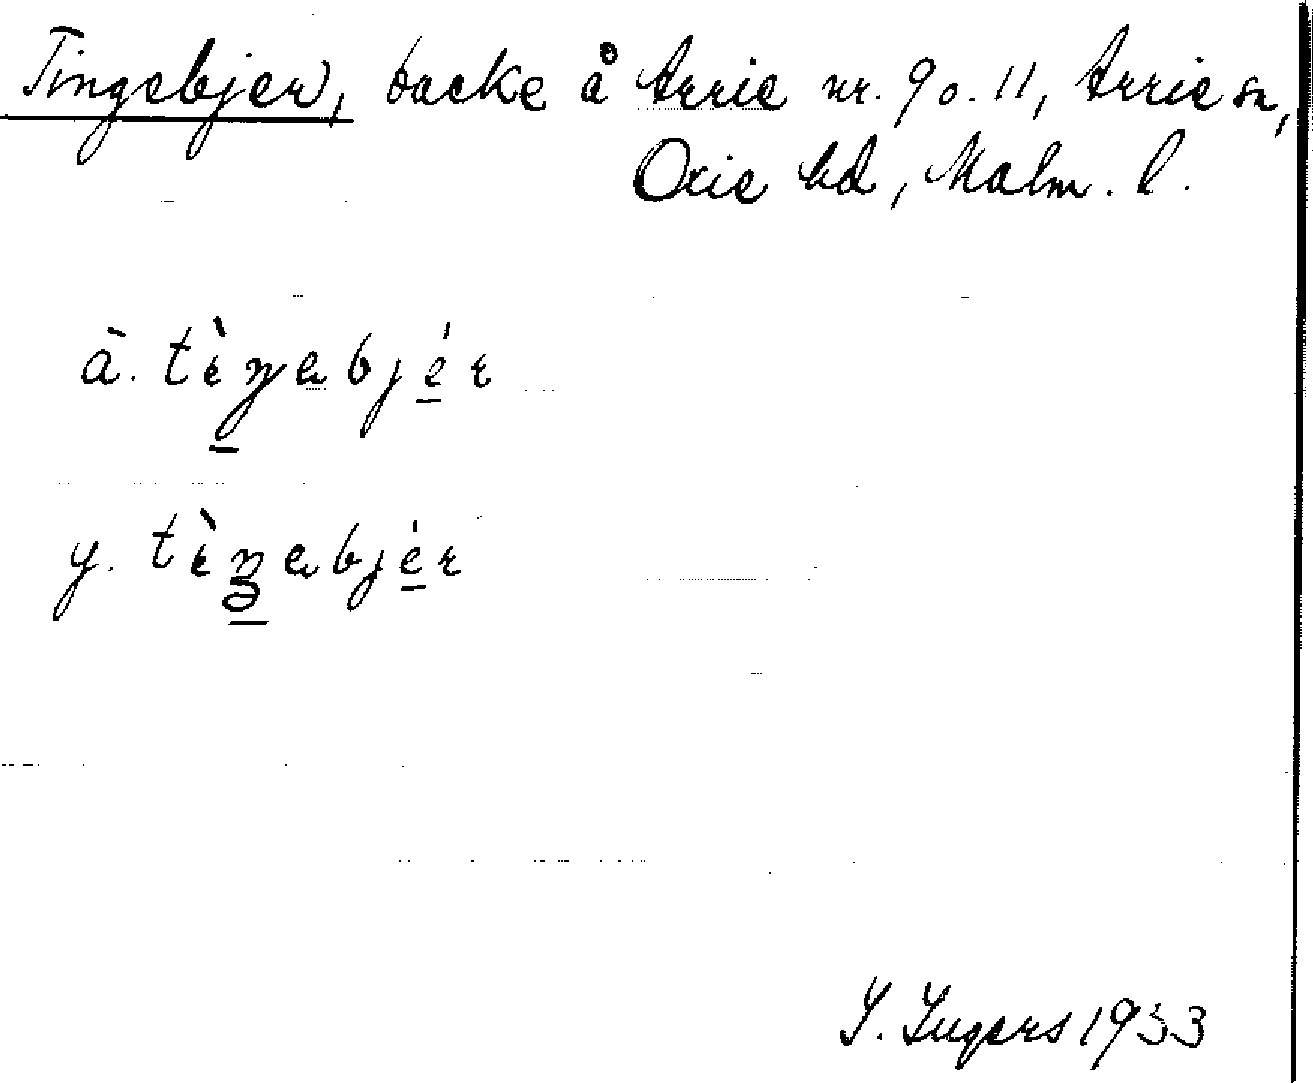 Tingebjer, backe å Arrie nr. 9 o. 11, Arrie sn,
Oxie hd, Malm. l.
ä. tìŋabjér
y. tìŋabjér
I. Ingers 1933